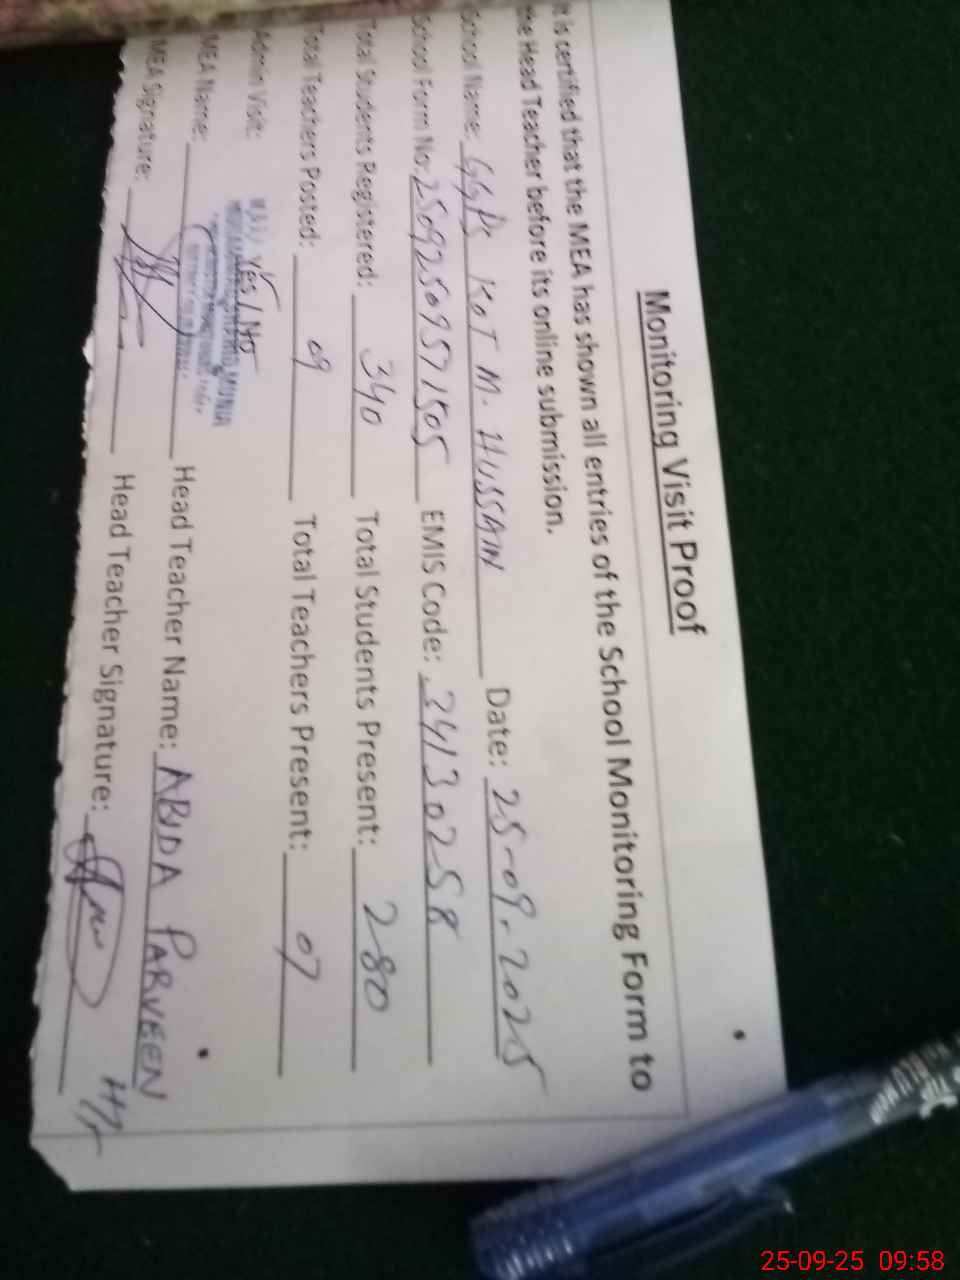 Monitoring Visit Proof
It is certified that the MEA has shown all entries of the School Monitoring Form to
the Head Teacher before its online submission.
School Name: GGPS KOT M. HUSSAIN Date: 25-09-2025
School Form No: 25092509571505 EMIS Code: 34130258
Total Students Registered: 340 Total Students Present: 280
Total Teachers Posted: 09 Total Teachers Present: 07
Admin Visit: Yes / No
MEA Name: Head Teacher Name: ABIDA PARVEEN
MEA Signature: Head Teacher Signature:
25-09-25 09:58